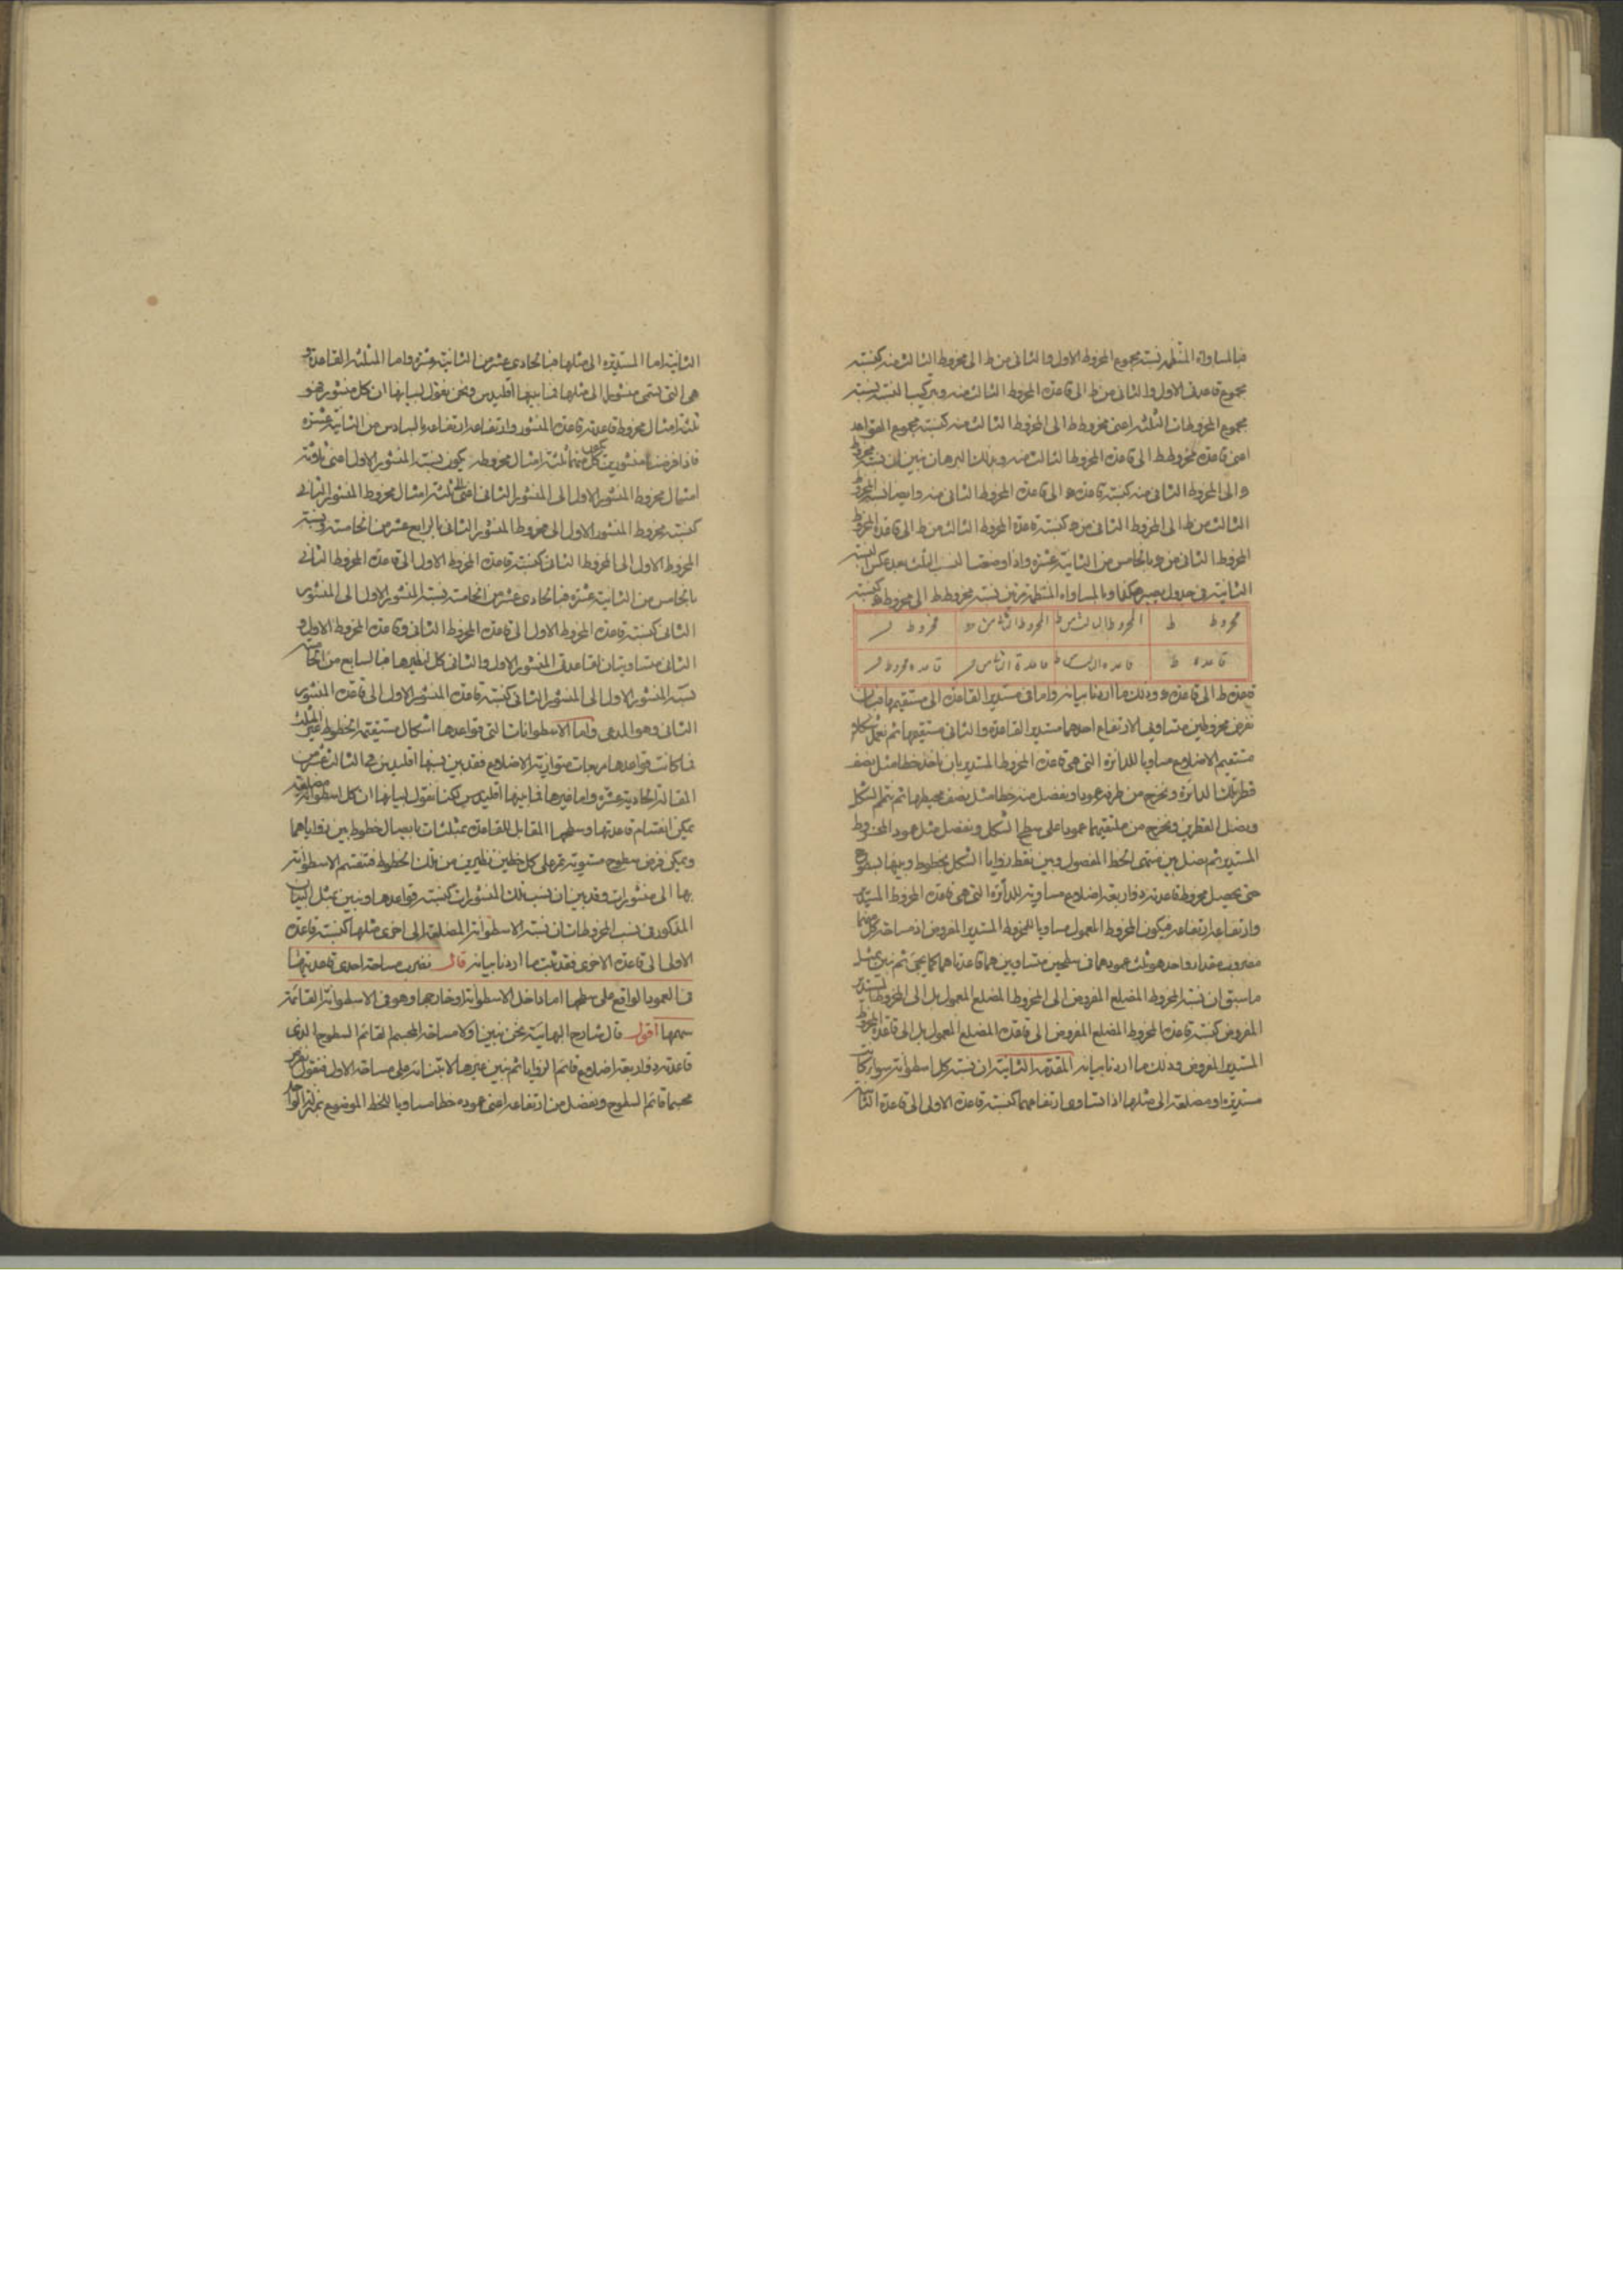 فبالمساواة المنتظمة نسبة مجموع المخروط الاول والثانى من ط الى مخروط الثالث منه كنسبة
مجموع قاعدتى الاول والثانى من ط الى قاعدة المخروط الثالث منه وبتركيب النسبة نسبة
مجموع المخروطات الثلثة اعنى مخروط ط الى المخروط الثالث منه كنسبة مجموع القواعد
اعنى قاعدة مخروط ط الى قاعدة المخروط الثالث منه وبذلك البرهان نبين ان نسبة مخروط
الى المخروط الثانى منه كنسبة قاعدة الى قاعدة المخروط الثانى منه وايضا نسبة المخروط
الثالث من ط الى المخروط الثانى من كنسبة قاعدة المخروط الثالث من ط الى قاعدة المخروط
المخروط الثانى من بالخامس من الثانية عشرة واذا وضعنا النسب الثلث بعد عكس النسبة
الثانية فى جدول يصير هكذا وبالمساواة المنتظمة نسبة مخروط ط الى مخروط كنسبة
مخروط ط المخروط الثالث من ط المخروط الثانى من مخروط
قاعدة ط قاعدة الثالث ط قاعدة الثانى من قاعدة مخروط
قاعدة ط الى قاعدة وذلك ما اردنا بيانه واما فى مستدير القاعدة الى مستقيمها فبان
نفرض مخروطين متساويى الارتفاع احدهما مستدير القاعدة والثانى مستقيمها ثم نعمل شكلا
مستقيم الاضلاع مساويا للدائرة التى هى قاعدة المخروط المستدير بان ناخذ خطا مثل نصف
قطر تلك الدائرة ونخرج من طرفه عمودا ونفصل منه خطا مثل نصف محيطها ثم نتمم الشكل
ونصل القطرين ونخرج من ملتقيهما عمودا على سطح الشكل ونفصل مثل عمود المخروط
المستدير ثم نصل بين منتهى الخط المفصول وبين نقط زوايا الشكل بخطوط وبينها بسطوح
حتى يحصل مخروط قاعدته ذو اربعة اضلاع مساوية للدائرة التى هى قاعدة المخروط المستدير
وارتفاعه ارتفاعه فيكون المخروط المعمول مساويا للمخروط المستدير المفروض اذ مساحة كل منهما
مضروب مقدار واحد هو ثلث عمودهما فى سطحين متساويين هما قاعدتاهما كما يجئ ثم نبين بمثل
ما سبق ان نسبة المخروط المضلع المفروض الى المخروط المضلع المعمول بل الى المخروط المستدير
المفروض كنسبة قاعدة المخروط المضلع المفروض الى قاعدة المضلع المعمول بل الى قاعدة المخروط
المستدير المفروض وذلك ما اردنا بيانه المقدمة الثانية ان نسبة كل اسطوانة سواء كانت
مستديرة او مضلعة الى مثلها اذا تساوى ارتفاعهما كنسبة قاعدة الاولى الى قاعدة الثانية
الثانية اما المستديرة الى مثلها فبالحادى عشر من الثانية عشرة واما المثلثة القاعدة و
هى التى تسمى منشورا الى مثلها فما بينها اقليدس ونحن نقول لبيانها ان كل منشور هو
ثلثة امثال مخروط قاعدته قاعدة المنشور وارتفاعه ارتفاعه بالسادس من الثانية عشرة
فاذا فرضنا منشورين يكون كل منهما ثلثة امثال مخروطه يكون نسبة المنشور الاول اعنى ثلاثة
امثال مخروط المنشور الاول الى المنشور الثانى اعنى ثلثة امثال مخروط المنشور الثانى
كنسبة مخروط المنشور الاول الى مخروط المنشور الثانى بالرابع عشر من الخامسة ونسبة
المخروط الاول الى المخروط الثانى كنسبة قاعدة المخروط الاول الى قاعدة المخروط الثانى
بالخامس من الثانية عشرة فبالحادى عشر من الخامسة نسبة المنشور الاول الى المنشور
الثانى كنسبة قاعدة المخروط الاول الى قاعدة المخروط الثانى وقاعدة المخروط الاول و
الثانى متساويتان لقاعدتى المنشور الاول والثانى كل لنظيرها فبالسابع من الخامسة
نسبة المنشور الاول الى المنشور الثانى كنسبة قاعدة المنشور الاول الى قاعدة المنشور
الثانى وهو المدعى واما الاسطوانات التى قواعدها اشكال مستقيمة الخطوط غير المثلث
فما كانت قواعدها مربعات متوازية الاضلاع فقد بين نسبها اقليدس فى الثالث عشر من
المقالة الحادية عشرة واما غيرها فما بينها اقليدس لكنا نقول لبيانها ان كل اسطوانة مضلعة
يمكن انقسام قاعدتها وسطحها المقابل للقاعدة بمثلثات بايصال خطوط بين زواياهما
ويمكن فرض سطوح مستوية تمر على كل خطين نظيرين من تلك الخطوط فتنقسم الاسطوانة
بها الى منشورات وقد بين ان نسب تلك المنشورات كنسبة قواعدها ونبين بمثل البيان
المذكور فى نسب المخروطات ان نسبة الاسطوانة المضلعة الى اخرى مثلها كنسبة قاعدة
الاولى الى قاعدة الاخرى فقد ثبت ما اردنا بيانه قال نضرب مساحة احدى قاعدتيها
فى العمود الواقع على سطحها اما داخل الاسطوانة او خارجها وهو فى الاسطوانة القائمة
سهمها اقول قال شارح البهائية نحن نبين اولا مساحة المجسم القائم السطوح الذى
قاعدته ذو اربعة اضلاع قائم الزوايا ثم نبين غيرها لابتنائه على مساحة الاول فنقول نفرض
مجسما قائم السطوح ونفصل من ارتفاعه اعنى عموده خطا مساويا للخط الموضوع بمنزلة الواحد